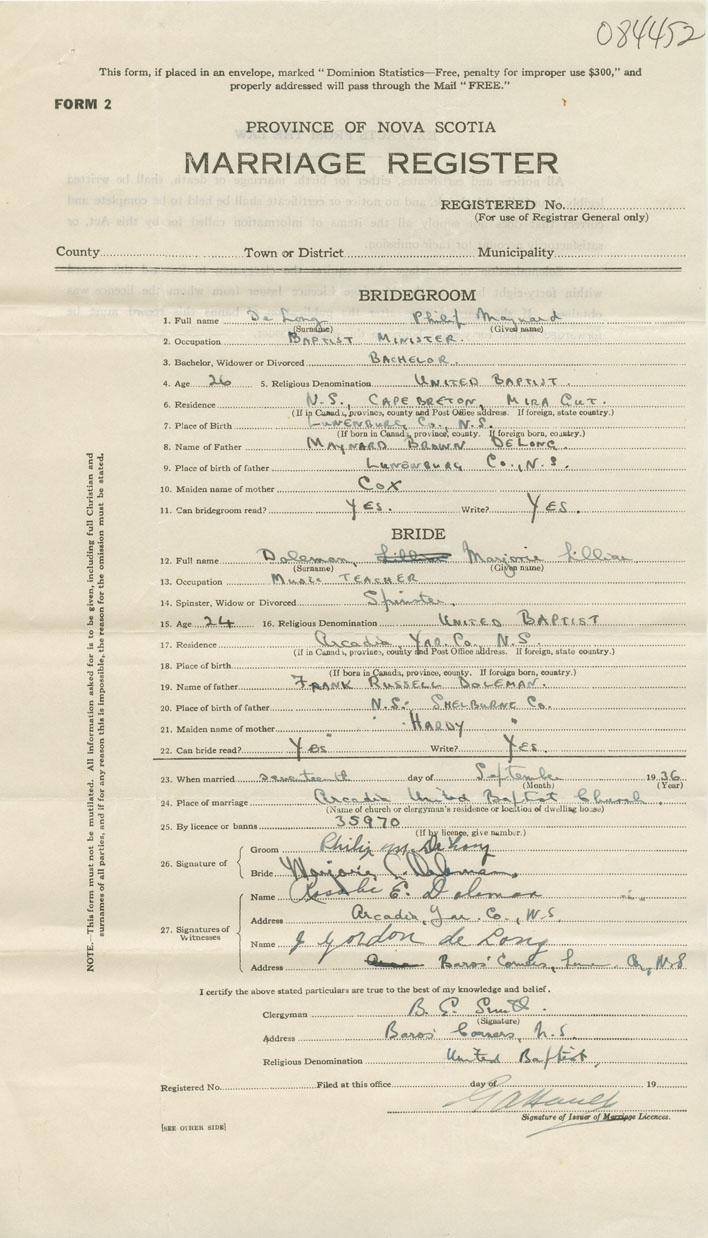 084452
This form, if placed in an envelope, marked "Dominion Statistics—Free, penalty for improper use $300," and
properly addressed will pass through the Mail "FREE."
FORM 2
PROVINCE OF NOVA SCOTIA
MARRIAGE REGISTER
REGISTERED No.
(For use of Registrar General only)
County Town or District Municipality
BRIDEGROOM
1. Full name De Long Philip Maynard
(Surname) (Given name)
2. Occupation BAPTIST MINISTER.
3. Bachelor, Widower or Divorced BACHELOR.
4. Age 26 5. Religious Denomination UNITED BAPTIST.
6. Residence N.S., CAPE BRETON, MIRA GUT.
(If in Canada, province, county and Post Office address. If foreign, state country.)
7. Place of Birth LUNENBURG CO., N.S.
(If born in Canada, province, county. If foreign born, country.)
8. Name of Father MAYNARD BROWN DELONG
9. Place of birth of father LUNENBURG CO., N.S.
10. Maiden name of mother COX
11. Can bridegroom read? YES. Write? YES.
BRIDE
12. Full name Doleman, Marjorie Lillian
(Surname) (Given name)
13. Occupation MUSIC TEACHER
14. Spinster, Widow or Divorced Spinster.
15. Age 24 16. Religious Denomination UNITED BAPTIST
17. Residence Arcadia, Yar. Co., N.S.
(If in Canada, province, county and Post Office address. If foreign, state country.)
18. Place of birth
(If born in Canada, province, county. If foreign born, country.)
19. Name of father FRANK RUSSELL DOLEMAN.
20. Place of birth of father N.S. SHELBURNE CO.
21. Maiden name of mother " HARDY "
22. Can bride read? Yes Write? Yes.
23. When married seventeenth day of September 1936
(Month) (Year)
24. Place of marriage Arcadia United Baptist Church
(Name of church or clergyman's residence or location of dwelling house)
25. By licence or banns 35970
(If by licence, give number.)
26. Signature of
Groom Philip M. DeLong
Bride Marjorie L. Doleman
27. Signatures of Witnesses
Name E. Doleman
Address Arcadia, Yar. Co., N.S.
Name J Gordon de Long
Address Baros' Corner, Lune. Co, N.S
I certify the above stated particulars are true to the best of my knowledge and belief.
Clergyman B. E. Smith.
(Signature)
Address Baros' Corners, N.S.
Religious Denomination United Baptist
Registered No. Filed at this office day of 19
Signature of Issuer of Marriage Licences.
[SEE OTHER SIDE]
NOTE.—This form must not be mutilated. All information asked for is to be given, including full Christian and
surnames of all parties, and if for any reason this is impossible, the reason for the omission must be stated.